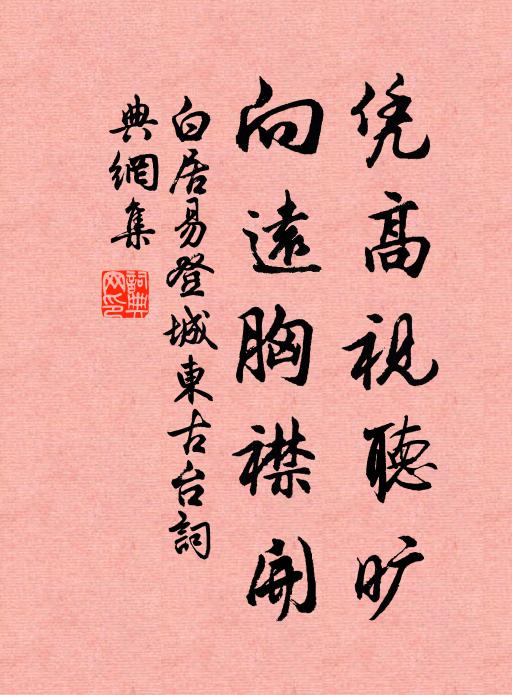 凭高視聽旷
向遠胸襟開
白居易登城東古台詞
典網集
詞典网印